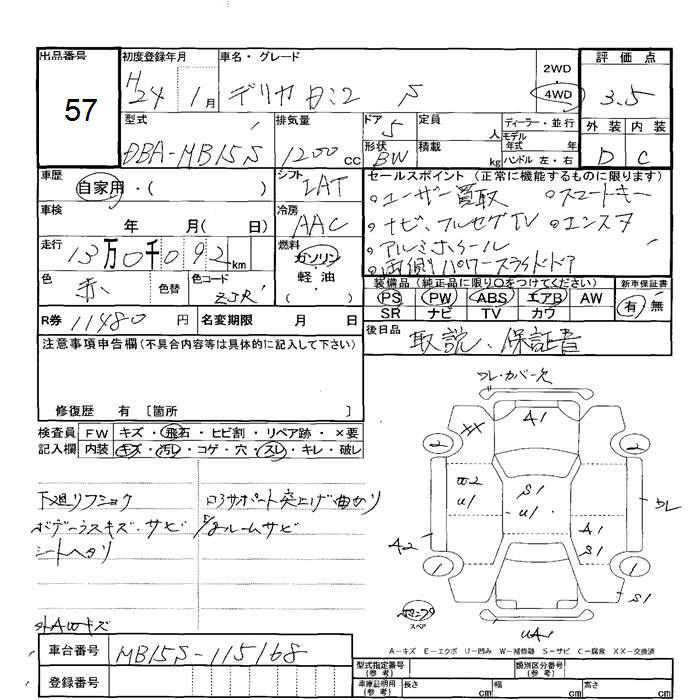 出品番号
57
初度登録年月
H
24 1月
車名・グレード
デリカ D:2 S
2WD
4WD
評価点
3.5
外装 内装
D C
型式
DBA-MB15S
排気量
1200cc
ドア
5
形状
BW
定員
人
積載
kg
ディーラー・並行
モデル
年式 年
ハンドル 左・右
車歴
自家用・( )
シフト
IAT
車検
年 月( 日)
冷房
AAC
走行
13万0千092km
燃料
ガソリン
軽・油
( )
色
赤
色替
色コード
ZJR
R券 11480 円
名変期限 月 日
セールスポイント(正常に機能するものに限ります)
○ユーザー買取 ○スマートキー
○ナビ、フルセグTV ○エンスタ
○アルミホイール
○両側パワースライドドア
装備品(純正品に限り○をつけてください)
PS PW ABS エアB AW
SR ナビ TV カワ
新車保証書
有 無
後日品
取説、保証書
注意事項申告欄(不具合内容等は具体的に記入して下さい)
修復歴 有 [箇所 ]
検査員
記入欄
FW キズ・飛石・ヒビ割・リペア跡・×要
内装 キズ・汚レ・コゲ・穴・スレ・キレ・破レ
下廻リフショク
ボデーラスキズ・サビ
シートヘタリ
ロアサポート突上げ曲がり
ルームサビ
外AWキズ
フレ・カバー欠
A1
XX
2
2
W2
U1
S1
U1
フレ
A2
A1
S1
1
1
S1
スペア
UA1
A-キズ E-エクボ U-凹み W-補修跡 S-サビ C-腐食 XX-交換済
車台番号
MB15S-115168
登録番号
型式指定番号
(参考)
類別区分番号
(参考)
車庫証明用
(参考)
長さ cm
幅 cm
高さ cm